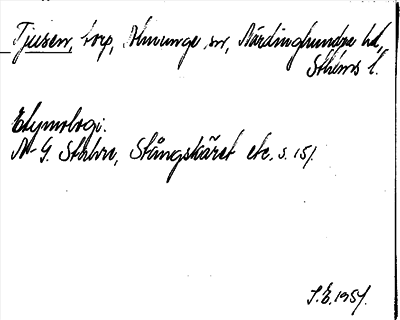 Tjusen, torp, Almunge sn, Närdinghundra hd,
Sthlms l.
Etymologi.
N-G. Stahre, Stångskäret etc. s. 151.
S.E. 1957.